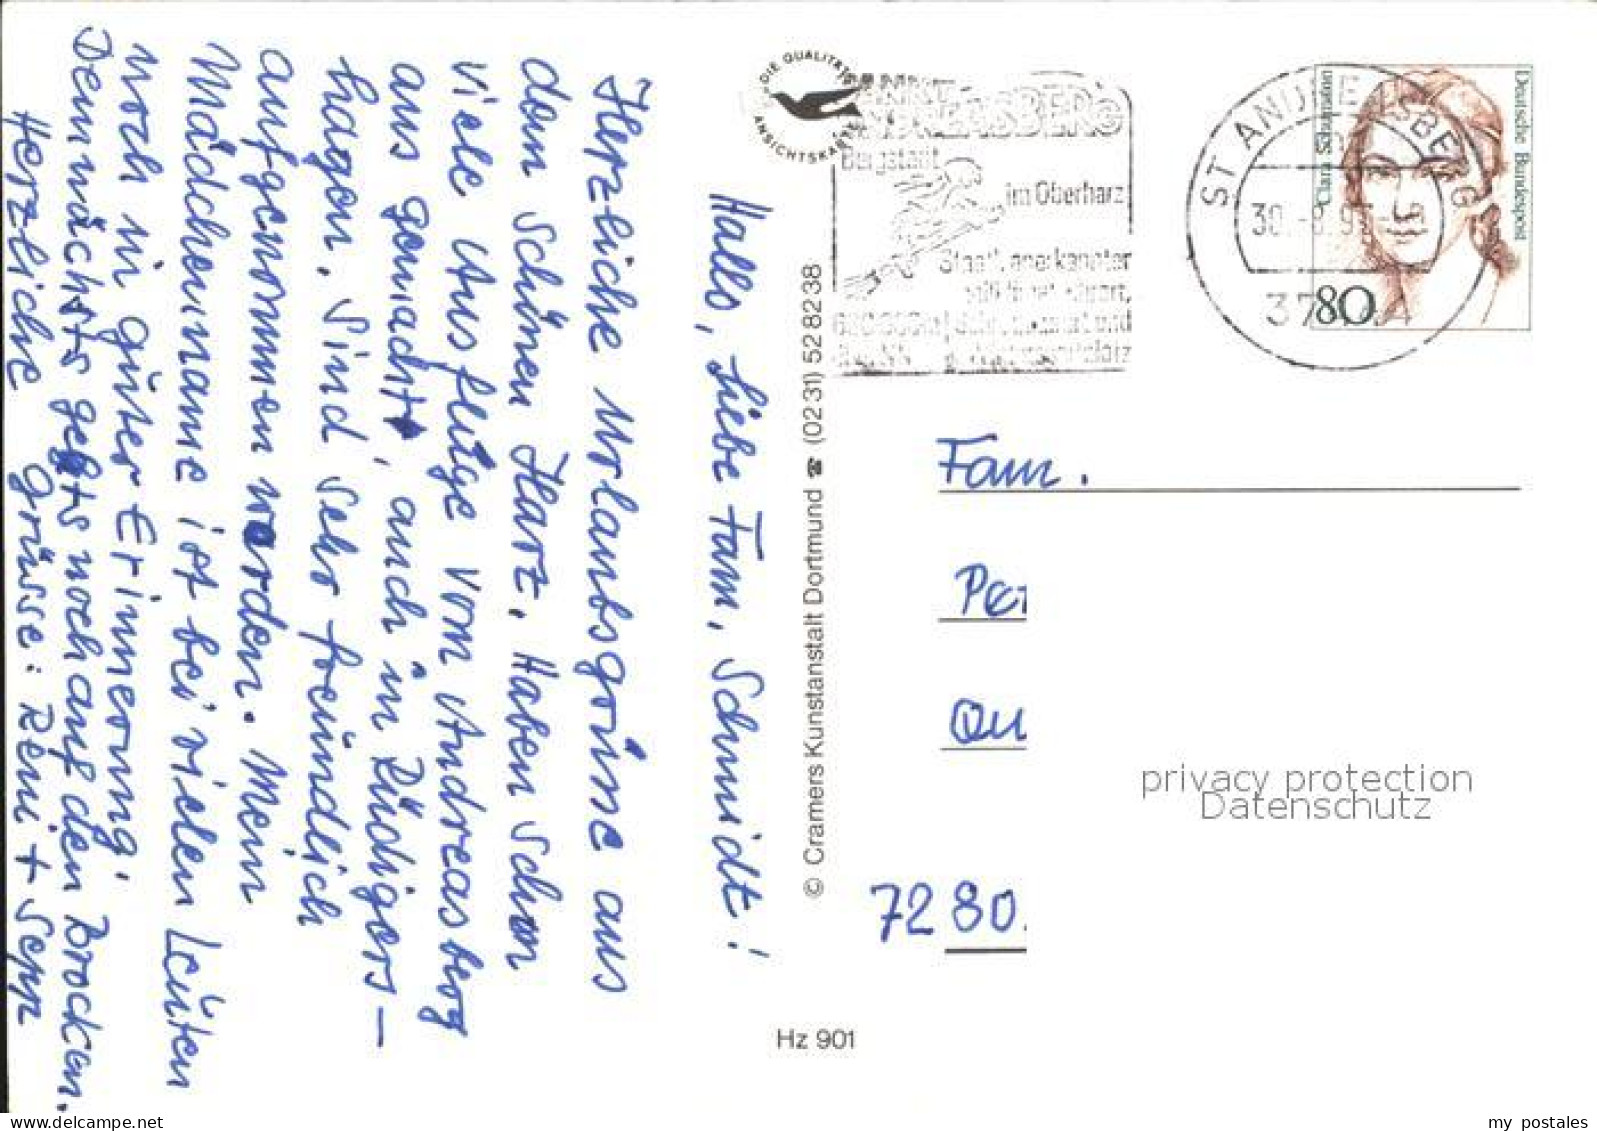 Hallo, Liebe Fam. Schmidt!
Herzliche Urlaubsgrüße aus
dem Schönen Harz. Haben schon
viele Ausflüge vom Andreasberg
aus gemacht, auch in Rüdigers-
hagen. Sind sehr freundlich
aufgenommen worden. Mein
Mädchenname ist bei vielen Leuten
noch in guter Erinnerung.
Demnächst gehts noch auf den Brocken.
Herzliche Grüsse: Reni + Sepp
DIE QUALITÄTS
ANSICHTSKARTE
SANKT
ANDREASBERG
Bergstadt
im Oberharz
Staatl. anerkannter
ST ANDREASBERG
30.-8.9
37
Deutsche Bundespost
Clara Schumann
80
© Cramers Kunstanstalt Dortmund ☎ (0231) 528238
Fam.
Pet
Qu
7280
privacy protection
Datenschutz
Hz 901
delcampe.net
my_postales